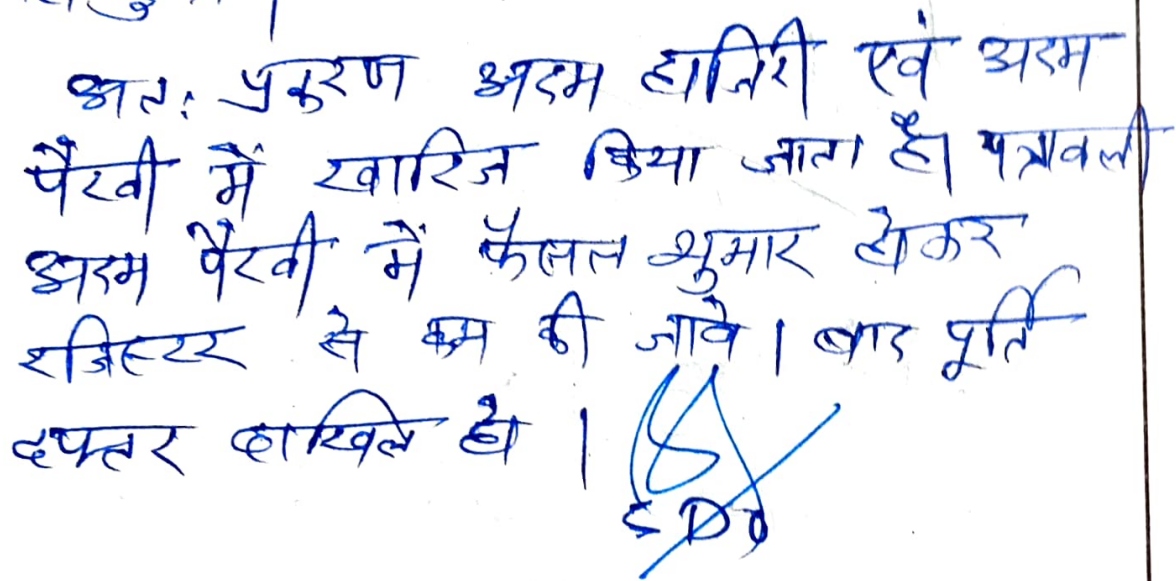 अतः प्रकरण अदम हाजिरी एवं अदम
पैरवी में खारिज किया जाता है। पत्रावली
अदम पैरवी में फैसल शुमार होकर
रजिस्टर से कम की जावे । बाद पूर्ति
दफ्तर दाखिल हो ।
SDO